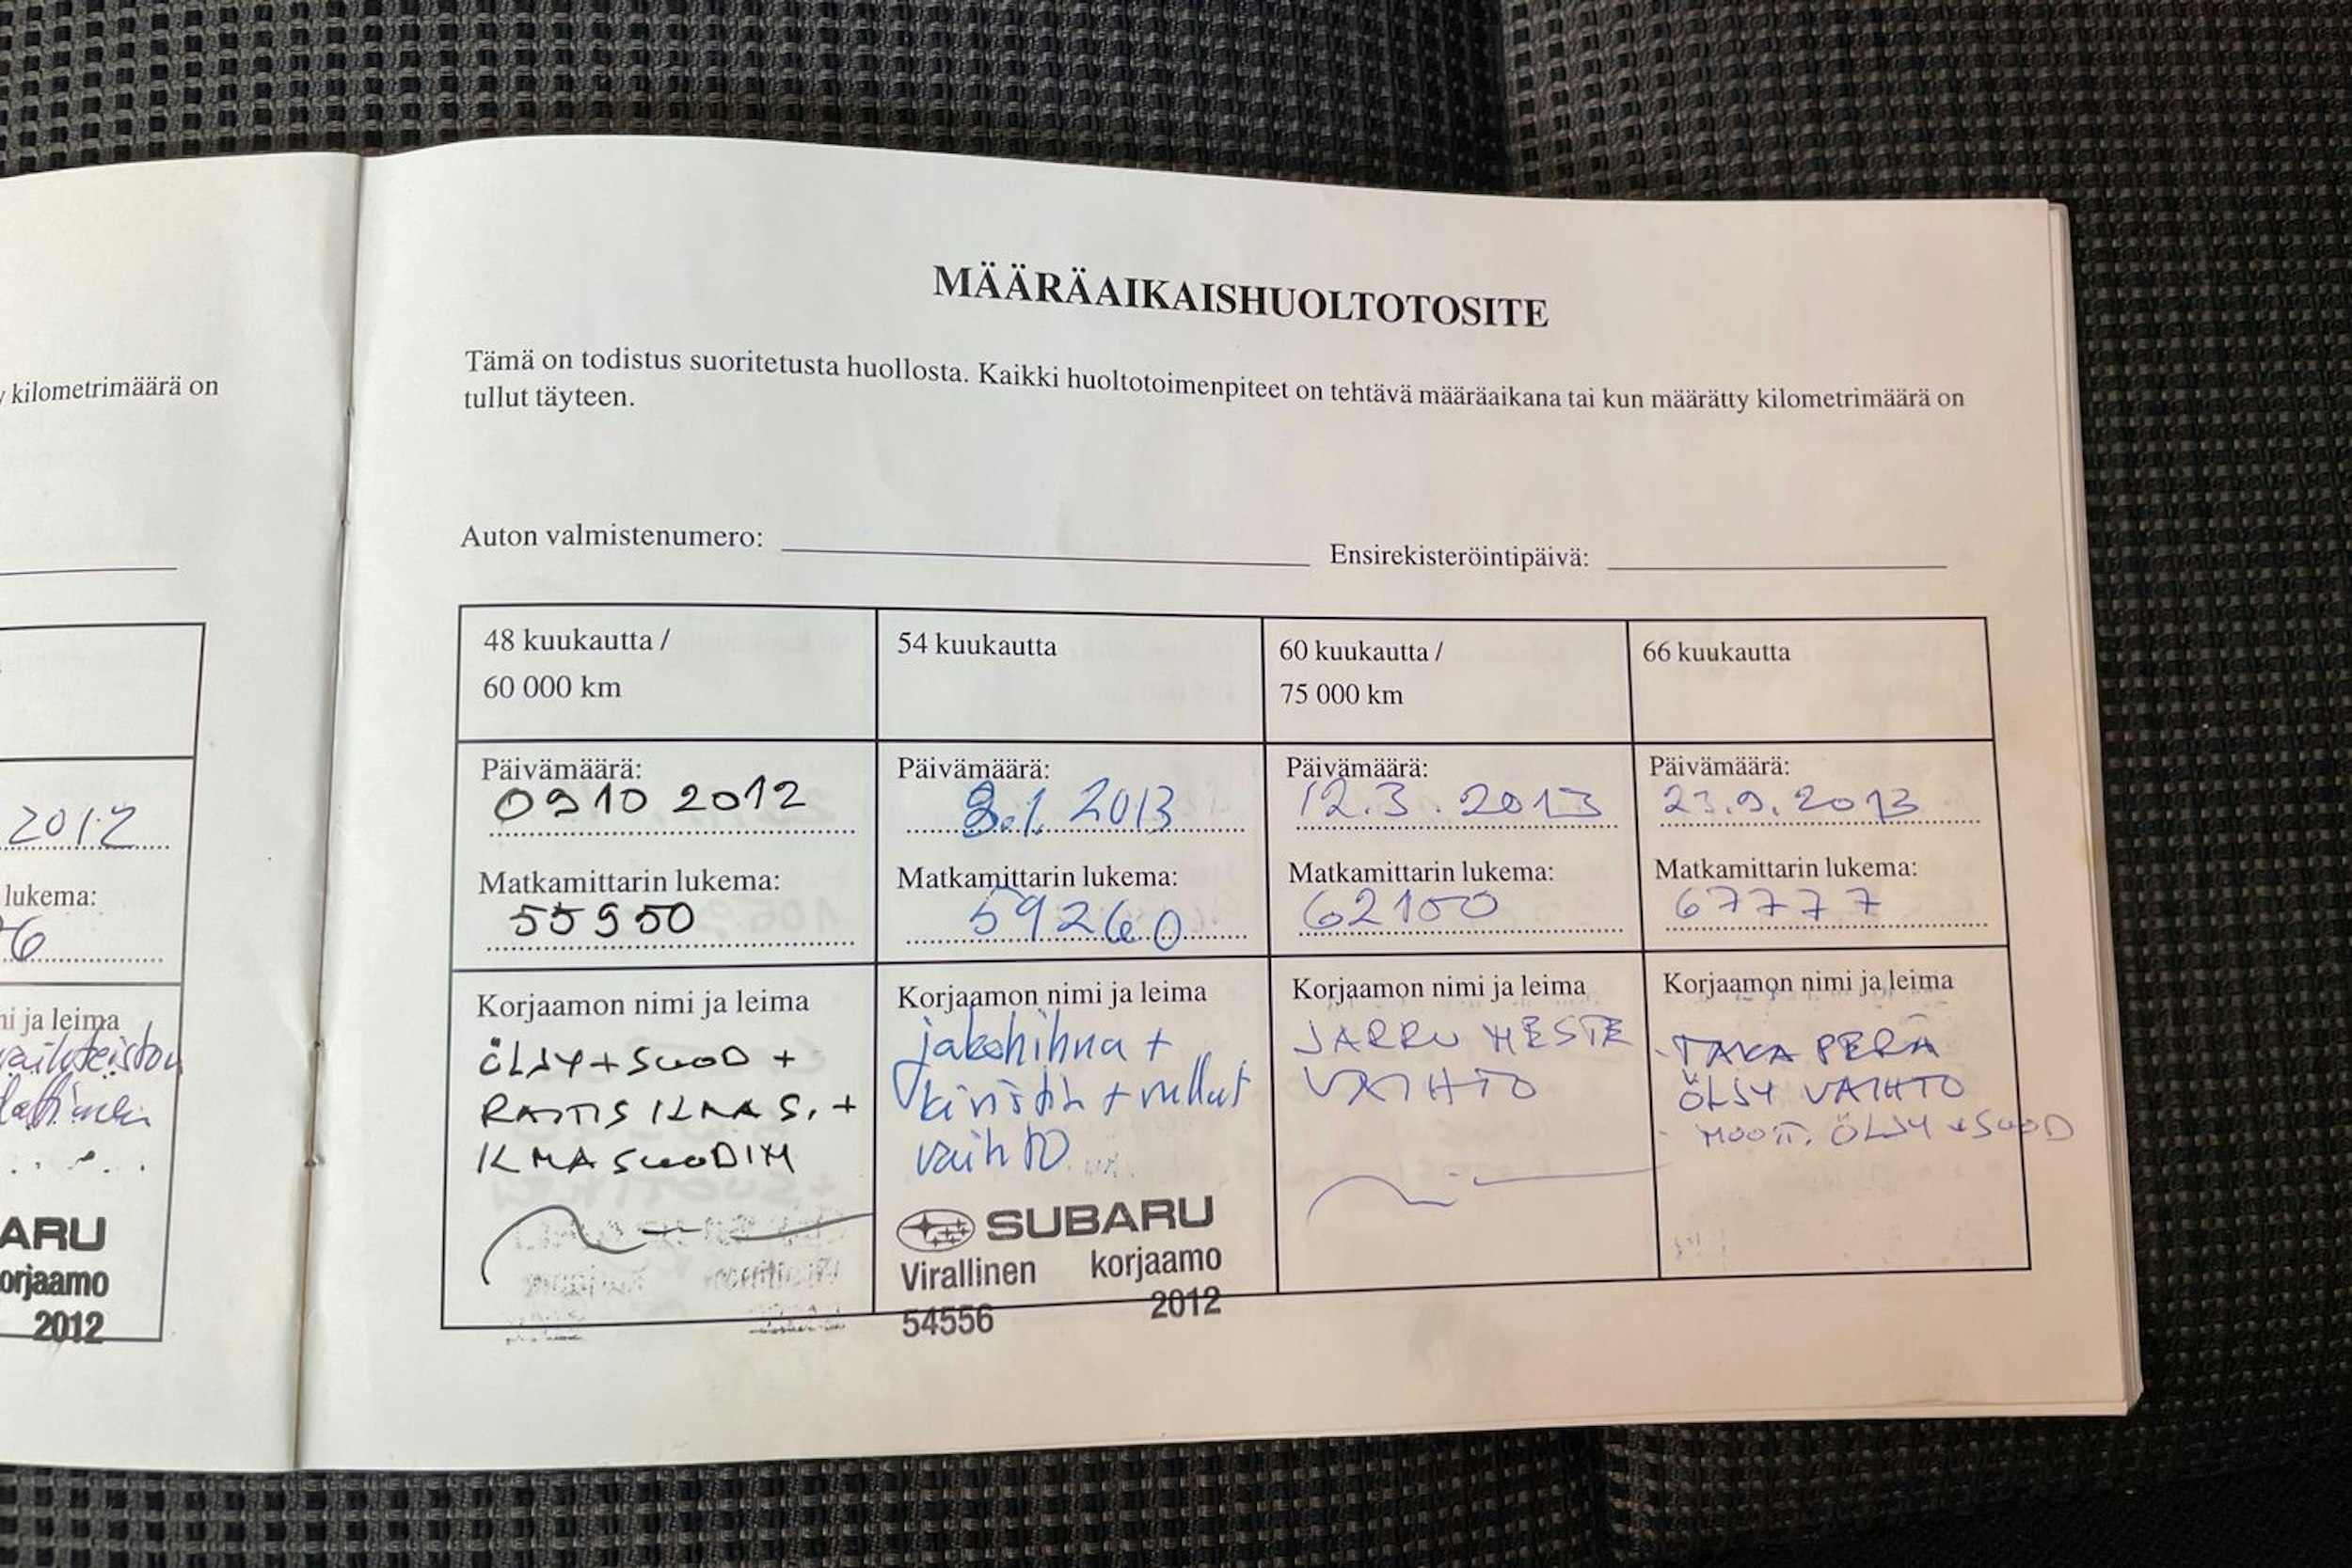 y kilometrimäärä on
2012
lukema:
6
ni ja leima
vaihteiston
ARU
orjaamo
2012
MÄÄRÄAIKAISHUOLTOTOSITE
Tämä on todistus suoritetusta huollosta. Kaikki huoltotoimenpiteet on tehtävä määräaikana tai kun määrätty kilometrimäärä on
tullut täyteen.
Auton valmistenumero:
Ensirekisteröintipäivä:
48 kuukautta /
60 000 km
Päivämäärä:
09 10 2012
Matkamittarin lukema:
55950
Korjaamon nimi ja leima
ÖLJY + SUOD +
RAITIS ILMA S. +
ILMASUODIM
54 kuukautta
Päivämäärä:
8.1. 2013
Matkamittarin lukema:
59260
Korjaamon nimi ja leima
jakohihna +
kiristin + rullat
vaihto
SUBARU
Virallinen korjaamo
54556 2012
60 kuukautta /
75 000 km
Päivämäärä:
12.3.2013
Matkamittarin lukema:
62100
Korjaamon nimi ja leima
JARRU NESTE
VAIHTO
66 kuukautta
Päivämäärä:
23.9.2013
Matkamittarin lukema:
67777
Korjaamon nimi ja leima
- TAKA PERÄ
ÖLJY VAIHTO
- MOOTT. ÖLJY + SUOD